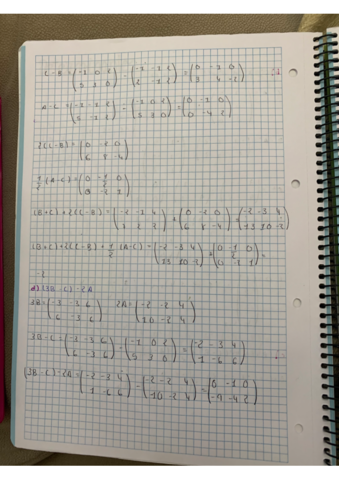 C-B = (-1 0 2 / 5 3 0) - (-1 -1 2 / 2 -1 2) = (0 1 0 / 3 4 -2)
A-C = (-1 -1 2 / 5 -1 2) - (-1 0 2 / 5 3 0) = (0 -1 0 / 0 -4 2)
2(C-B) = (0 2 0 / 6 8 -4)
1/2 (A-C) = (0 -1/2 0 / 0 -2 1)
(B+C)+2(C-B) = (-2 -3 4 / 2 2) + (0 -2 0 / 6 8 -4) (-2 -3 4 / 13 10 -2)
(B+C)+2(C-B)+1/2 (A-C) = (-2 -3 4 / 13 10 -2) + (0 -1/2 0 / 0 -2 1) =
d) (3B-C)-2A
3B = (-3 -3 6 / 6 -3 6) 2A = (-2 -2 4 / 10 -2 4)
3B-C = (-3 -3 6 / 6 -3 6) - (-1 0 2 / 5 3 0) = (-2 -3 4 / 1 -6 6)
(3B-C)-2A = (-2 -3 4 / 1 -6 6) - (-2 -2 4 / 10 -2 4) = (0 -1 0 / -9 -4 2)